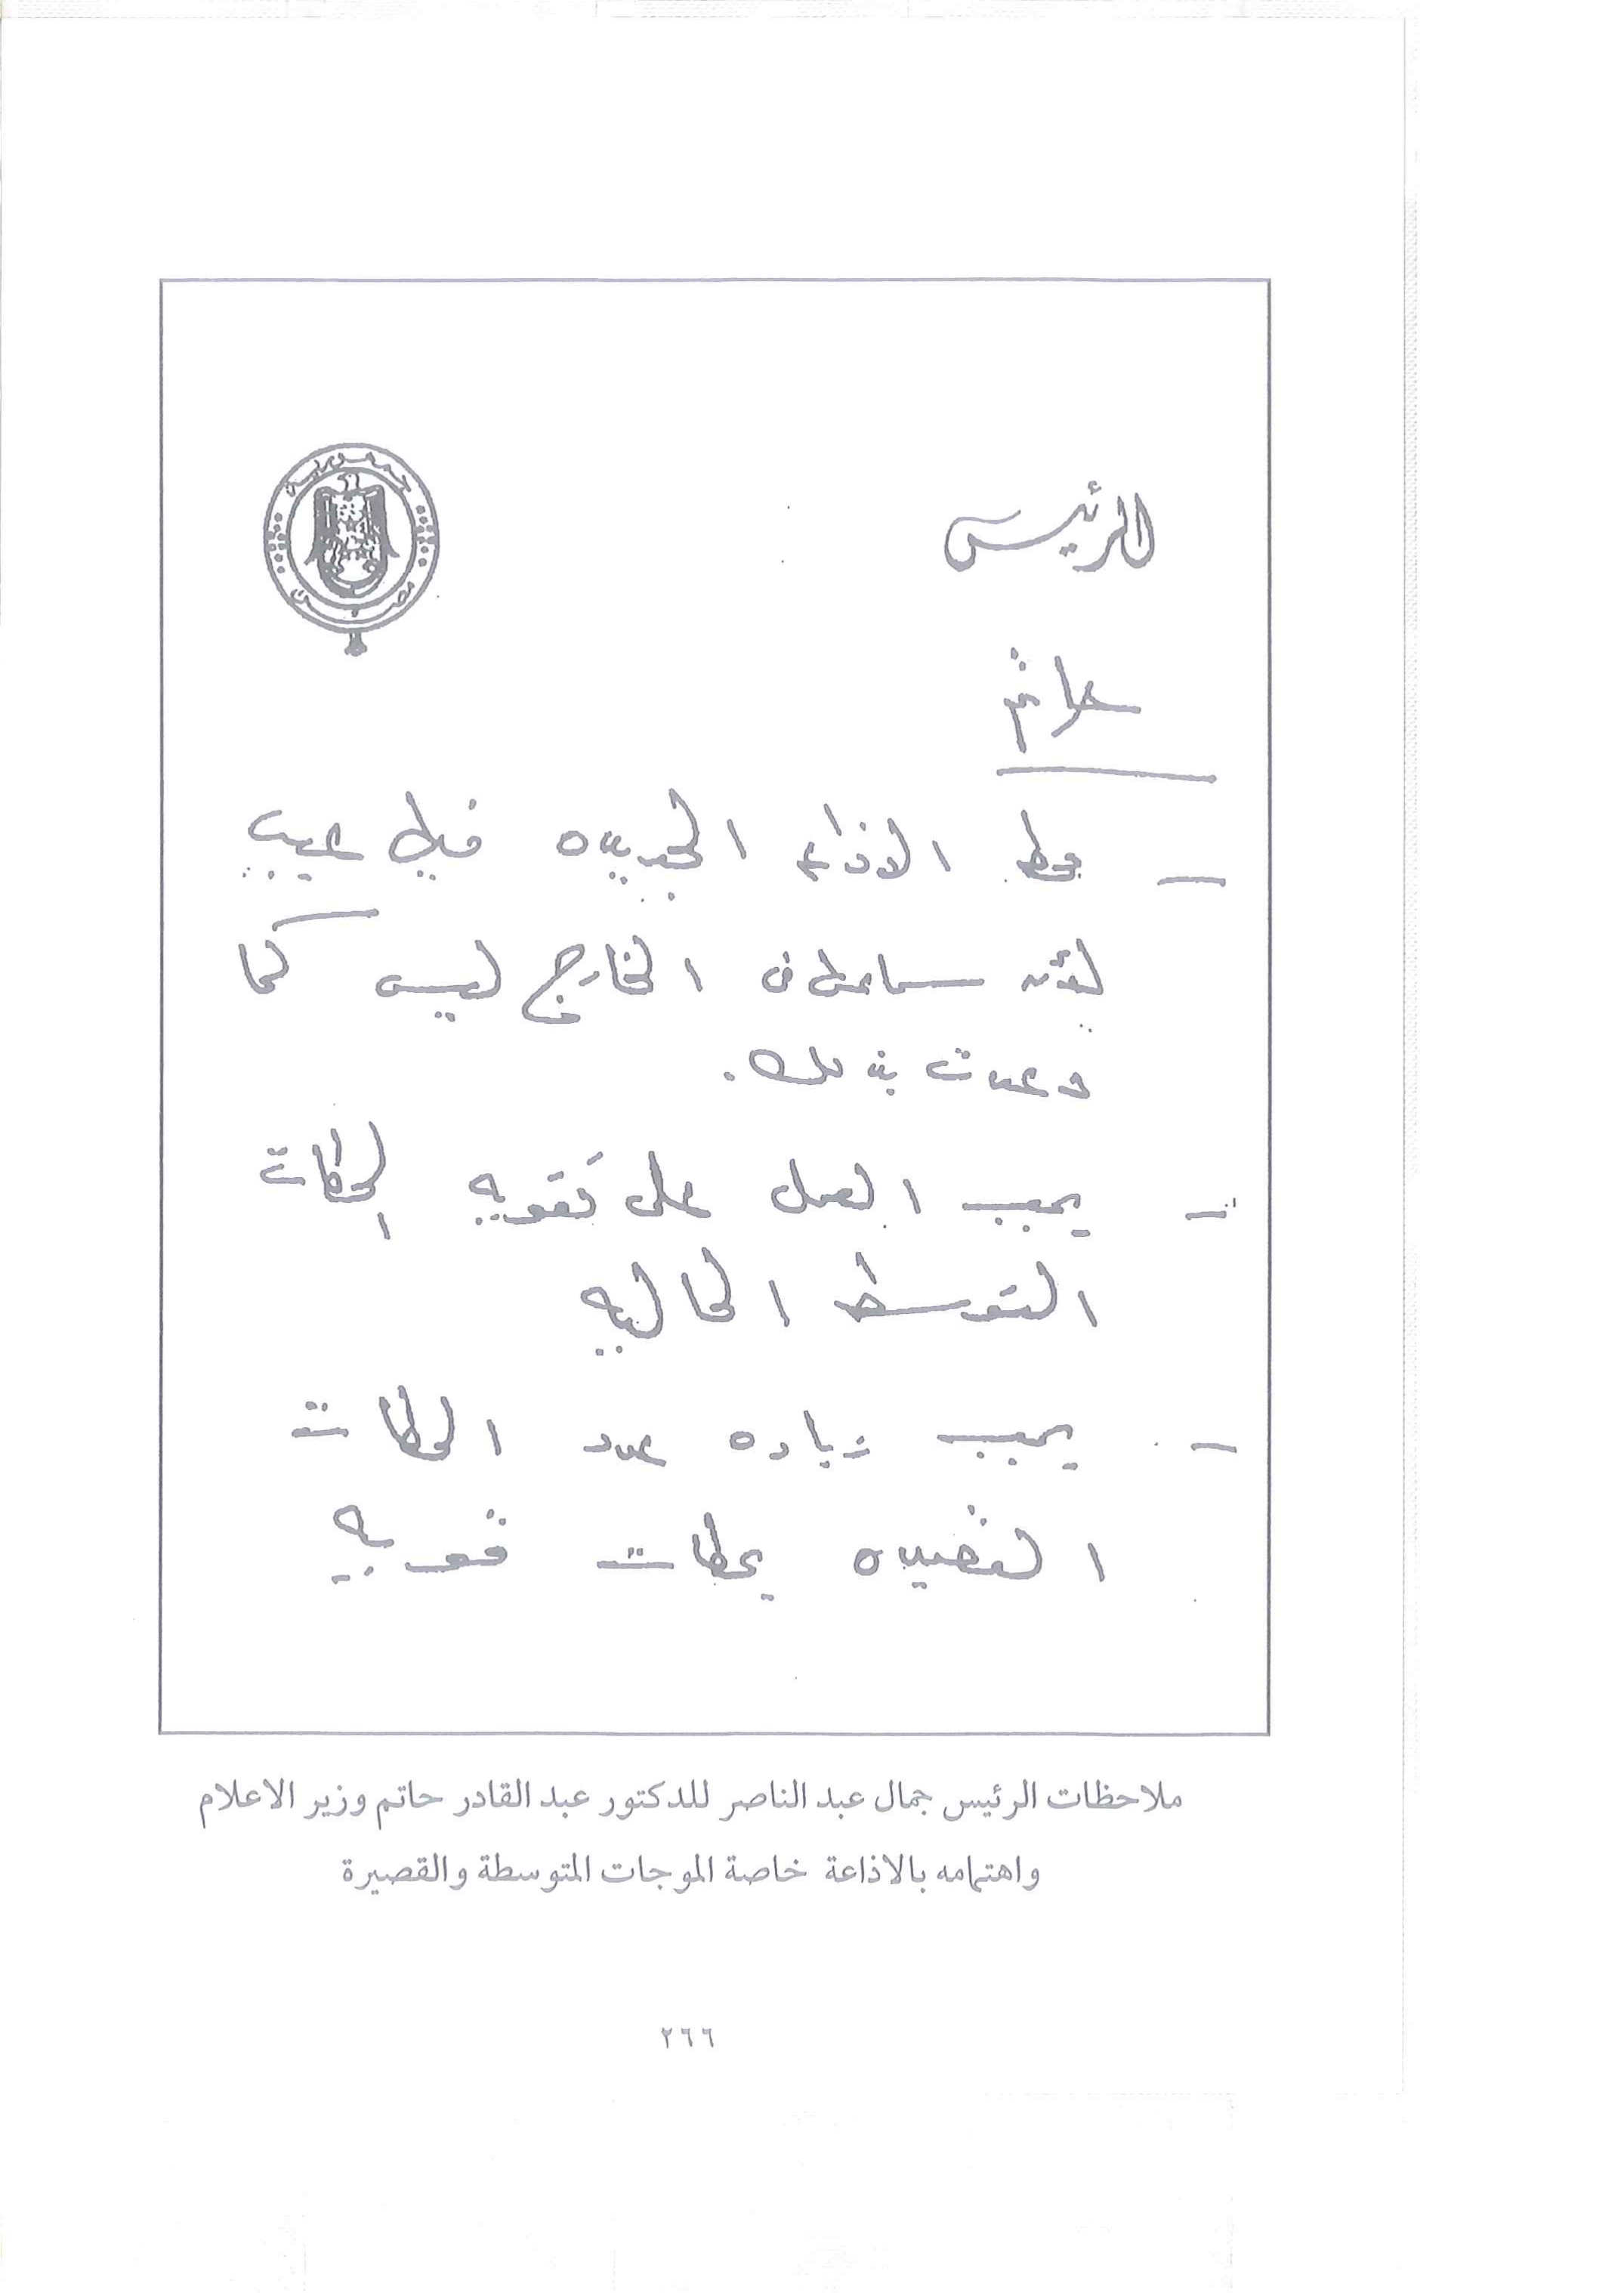 جمهورية
مصر
الرئيس
حاتم
– محطه الاذاعه الجديده فيلا عيب
لأن سماعها في الخارج ليس كما
وعدت بذلك.
– يجب العمل على تقويه المحطات
المتوسطه الحاليه
– يجب زياده عدد المحطات
القصيره بمحطات قويه
ملاحظات الرئيس جمال عبد الناصر للدكتور عبد القادر حاتم وزير الاعلام
واهتمامه بالاذاعة خاصة الموجات المتوسطة والقصيرة
٢٦٦